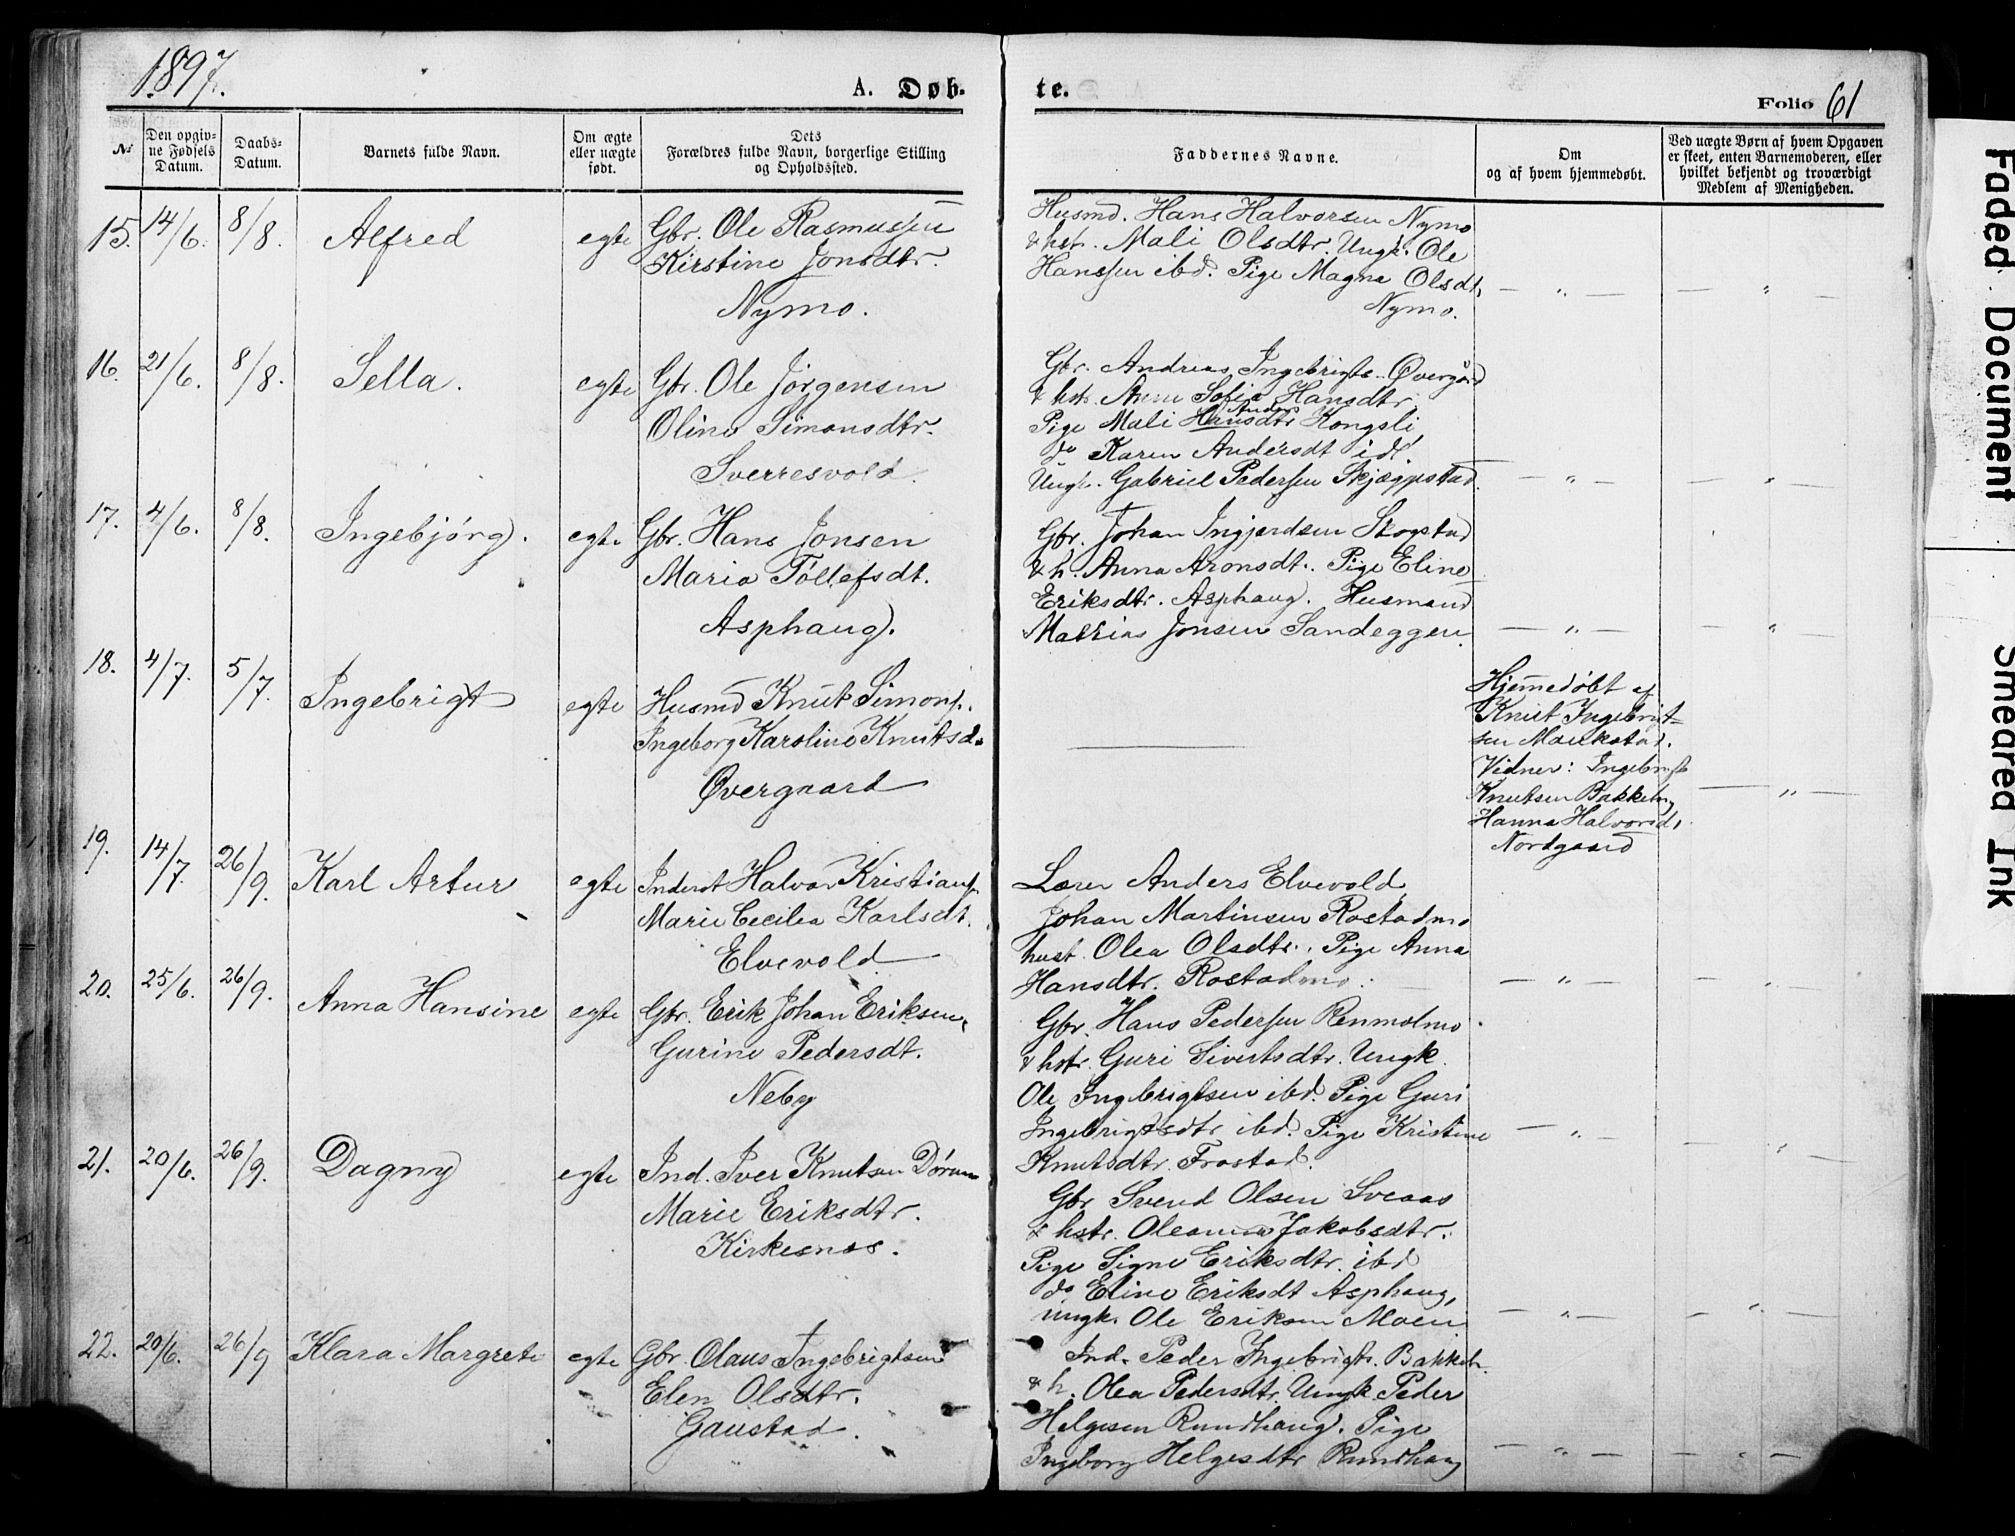 1897.
A. Døb-
te.
Folio 61
No
Den opgiv-
ne Fødsels
Datum.
Daabs-
Datum.
Barnets fulde Navn.
Om ægte
eller uægte
født.
Dets
Forældres fulde Navn, borgerlige Stilling
og Opholdssted.
Faddernes Navne.
Om
og af hvem hjemmedøbt.
Ved uægte Børn af hvem Opgaven
er skeet, enten Barnemoderen, eller
hvilket bekjendt og troværdigt
Medlem af Menigheden.
15. 14/6. 8/8. Alfred egte Gbr. Ole Rasmussen
Kirstine Jonsdtr.
Nymo.
Husmd. Hans Halvorsen Nymo
& hst. Mali Olsdtr. Ungk. Ole
Hanssen ibd. Pige Magna Olsdt.
Nymo.
— " — — " —
16. 21/6. 8/8. Sella. egte Gbr. Ole Jørgensen
Oline Simonsdtr.
Sverresvold.
Gbr. Andreas Ingebrigts. Øvergård
& hstr. Anne Sofia Hansdtr.
Anders
Pige Mali Hansdtr Kongsli
do Karen Andersdt id
Ungk. Gabriel Pedersen Skjæggestad.
— " — — " —
17. 4/6. 8/8. Ingebjørg. egte Gbr. Hans Jonsen
Maria Tollefsdt.
Asphaug.
Gbr. Johan Ingjerdsen Skogstad
& h. Anna Aronsdt. Pige Eline
Eriksdtr. Asphaug. Husmand
Mathias Jonsen Sandeggen.
— " — — " —
18. 4/7. 5/7. Ingebrigt egte Husmd Knut Simons.
Ingeborg Karoline Knutsd.
Øvergaard
Hjemmedøbt af
Knut Ingebrigt-
sen Moukstad.
Vidner: Ingebrigt
Knutsen Bakkehg
Hanna Halvorsd.
Nordgaard
— " —
19. 14/7. 26/9. Karl Artur egte Inderst Halvor Kristians.
Marie Cecilia Karlsdt.
Elvevold
Lærer Anders Elvevold,
Johan Martinsen Rostadmo
hust. Olea Olsdtr. Pige Anna
Hansdtr. Rostadmo.
— " — — " —
20. 25/6. 26/9. Anna Hansine egte Gbr. Erik Johan Eriksen,
Gurine Pedersdt.
Neby
Gbr. Hans Pedersen Renmolmo
& hstr. Guri Sivertsdtr. Ungk.
Ole Ingebrigtsen ibd. Pige Guri
Ingebrigtsdtr ibd. Pige Kristine
Knutsdtr. Frostad.
— " — — " —
21. 20/6. 26/9. Dagny egte Ind. Iver Knutsen Dørum
Marie Eriksdtr.
Kirkesnæs.
Gbr Svend Olsen Sveaas
& hstr. Oleanna Jakobsdtr.
Pige Signe Eriksdtr. ibd
do Eline Eriksdt Asphaug,
ungk. Ole Eriksen Moen
— " — — " —
22. 20/6. 26/9 Klara Margrete egte Gbr. Olaus Ingebrigtsen
Elen Olsdtr.
Gaustad.
Ind. Peder Ingebrigts. Bakkeh.
& h. Olea Pedersdtr. Ungk. Peder
Helgesen Rundhaug. Pige
Ingeborg Helgesdtr Rundhaug
— " — — " —
Faded Document
Smeared Ink